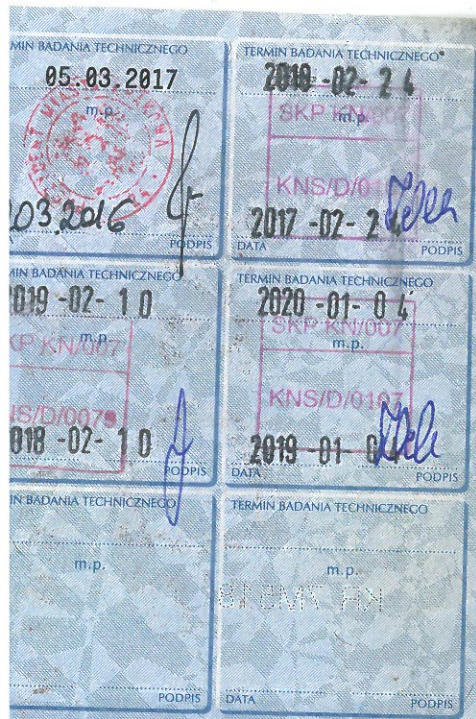 MIN BADANIA TECHNICZNEGO
05.03.2017
m.p.
03.2016
PODPIS
TERMIN BADANIA TECHNICZNEGO*
2018-02-24
m.p.
SKP KN/007
KNS/D/01
2017-02-24
DATA
PODPIS
MIN BADANIA TECHNICZNEGO
019-02-10
m.p.
KP KN/007
NS/D/0079
018-02-10
PODPIS
TERMIN BADANIA TECHNICZNEGO
2020-01-04
SKP KN/007
m.p.
KNS/D/0107
2019-01-04
DATA
PODPIS
IN BADANIA TECHNICZNEGO
m.p.
PODPIS
TERMIN BADANIA TECHNICZNEGO
m.p.
DATA
PODPIS